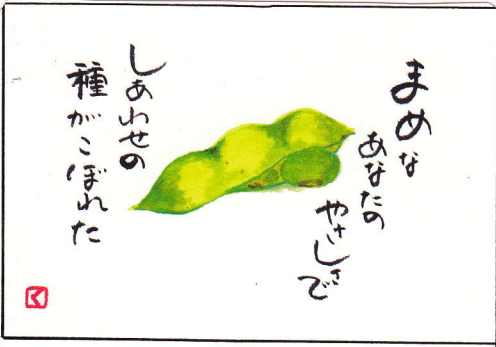 まめな
あなたの
やさしさで
しあわせの
種がこぼれた
く